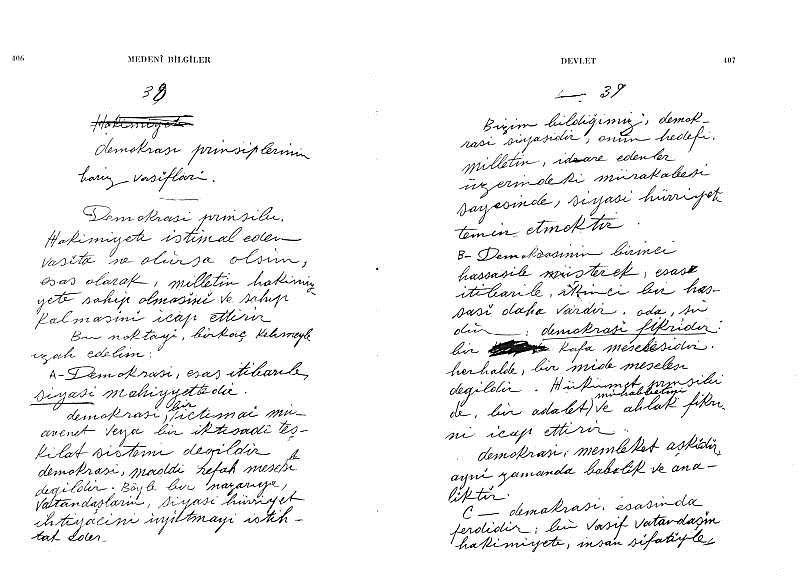 406
MEDENÎ BİLGİLER
38
Hakimiyete
demokrasi prinsiplerinin
bariz vasıfları.
Demokrasi prinsibi,
Hakimiyete istimal eden
vasıta ne olursa olsun,
esas olarak, milletin hakimiy
yete sahip olmasını ve sahip
kalmasını icap ettirir
Bu noktayı, birkaç kelimeyle
izah edelim:
A- Demokrasi, esas itibarile,
siyasi mahiyettedir.
demokrasi, bir içtemai mu-
avenet veya bir iktesadi teş-
kilat sistemi degildir
demokrasi, maddi refah meselesi
degildir. Böyle bir nazariye,
vatandaşların, siyasi hürriyet
ihtiyacını uyutmayı istih-
taf eder.
DEVLET
407
39
Bizim bildiğimiz, demok-
rasi siyasidir, onun hedefi,
milletin, idare edenler
üzerindeki mürakabesi
sayesinde, siyasi hürriyeti
temin etmektir.
B- Demokrasinin birinci
hassasile müşterek, esas
itibarile, ikinci bir has-
sası daha vardır. oda, şu
dur: demokrasi fikridir:
bir kafa meselesidir.
herhalde, bir mide meselesi
degildir. Hükumet prinsibi
de, bir adalet, muhabbetini ve ahlak fikri-
ni icap ettirir.
demokrasi, memleket aşkıdır,
ayni zamanda babalık ve ana-
lıktır.
C — demokrasi, esasında
ferdidir; bu vasıf vatandaşın
hakimiyete, insan sıfatiyle,